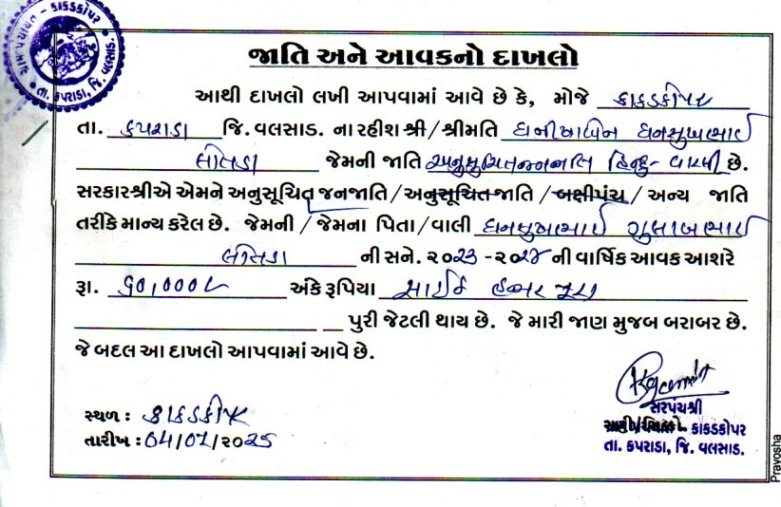 ગ્રામ પંચાયત - કાકડકોપર
તા. કપરાડા, જિ. વલસાડ.
જાતિ અને આવકનો દાખલો
આથી દાખલો લખી આપવામાં આવે છે કે, મોજે કાકડકોપર
તા. કપરાડા જિ. વલસાડ. ના રહીશ શ્રી/શ્રીમતિ ધનસુખભાઈ
જેમની જાતિ અનુસુચિત જનજાતિ હિન્દુ- વારલી છે.
સરકારશ્રીએ એમને અનુસૂચિત જનજાતિ/અનુસૂચિત જાતિ/બક્ષીપંચ/ અન્ય જાતિ
તરીકે માન્ય કરેલ છે. જેમની/જેમના પિતા/વાલી ધનસુખભાઈ ગુલાબભાઈ
ની સને. ૨૦૨૩-૨૦૨૪ની વાર્ષિક આવક આશરે
રૂા. ૬૦,૦૦૦/- અંકે રૂપિયા સાઈઠ હજાર પુરા
પુરી જેટલી થાય છે. જે મારી જાણ મુજબ બરાબર છે.
જે બદલ આ દાખલો આપવામાં આવે છે.
સ્થળ : કાકડકોપર
તારીખ : 04/07/૨૦૨૫
સરપંચશ્રી
કાકડકોપર
તા. કપરાડા, જિ. વલસાડ.
Pravosha